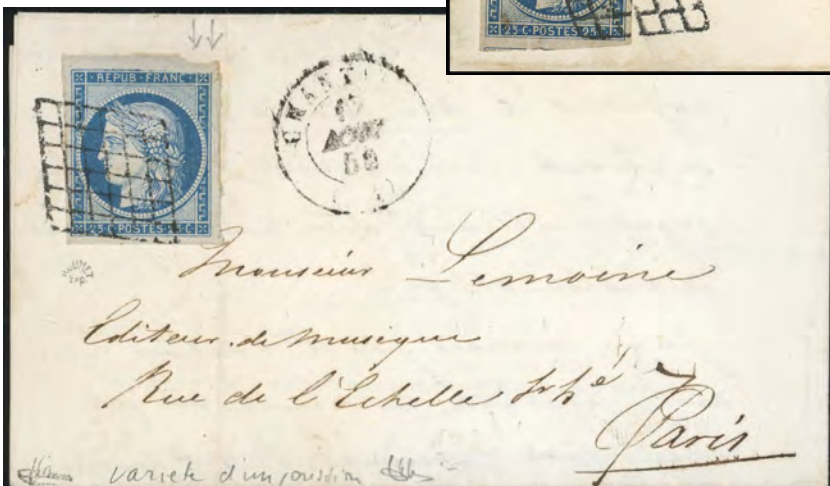 25 C·POSTES·25·C
REPUB·FRANC
25·C·POSTES·25·C
AOUT
52
Monsieur Lemoine
Editeur de musique
Rue de l'Echelle
Paris
variété d'impression